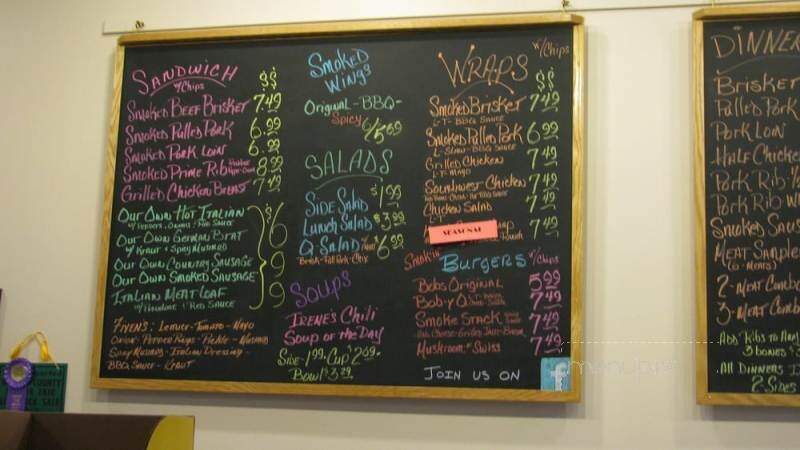 SANDWICH
w/Chips
$$
Smoked Beef Brisket 7.49
Smoked Pulled Pork 6.99
Smoked Pork Loin 6.99
Smoked Prime Rib 8.99
Grilled Chicken Breast 7.49
Our Own Hot Italian
Our Own German Brat
w/ Kraut & Spicy Mustard
Our Own Country Sausage
Our Own Smoked Sausage
Italian Meat Loaf
w/ Provolone & Red Sauce
6 99
Fixens: Lettuce - Tomato - Mayo
Onion - Pepper Rings - Pickle - Mustard
Spicy Mustard - Italian Dressing -
BBQ Sauce - Kraut
Smoked
Wings
Original - BBQ -
Spicy 6/5.69
SALADS
Side Salad $1.99
Lunch Salad $3.99
Q Salad $6.99
Brisk - Pull Pork - Chix
Soups
Irene's Chili
Soup of the Day
Side 1.99 Cup 2.69
Bowl 3.29
WRAPS w/Chips
$$
Smoked Brisket 7.49
L - T - BBQ Sauce
Smoked Pulled Pork 6.99
L - Slaw - BBQ Sauce
Grilled Chicken 7.49
L - T - Mayo
Southwest Chicken 7.49
Chicken Salad 7.49
L - T
SEASONAL
7.49
Smok'in Burgers w/Chips
Bobs Original 5.99
Bob-y Q 7.49
Smoke Stack 7.49
Mushroom & Swiss 7.49
JOIN US ON
f
menupix
DINNER
Brisket
Pulled Pork
Pork Loin
Half Chicke
Pork Rib 1/2
Pork Rib Wh
Smoked Saus
Meat Sampler
(6 - Meats)
2-Meat Combo
3-Meat Combo
Add Ribs to Any
3 bones $
All Dinners I
2 Sides